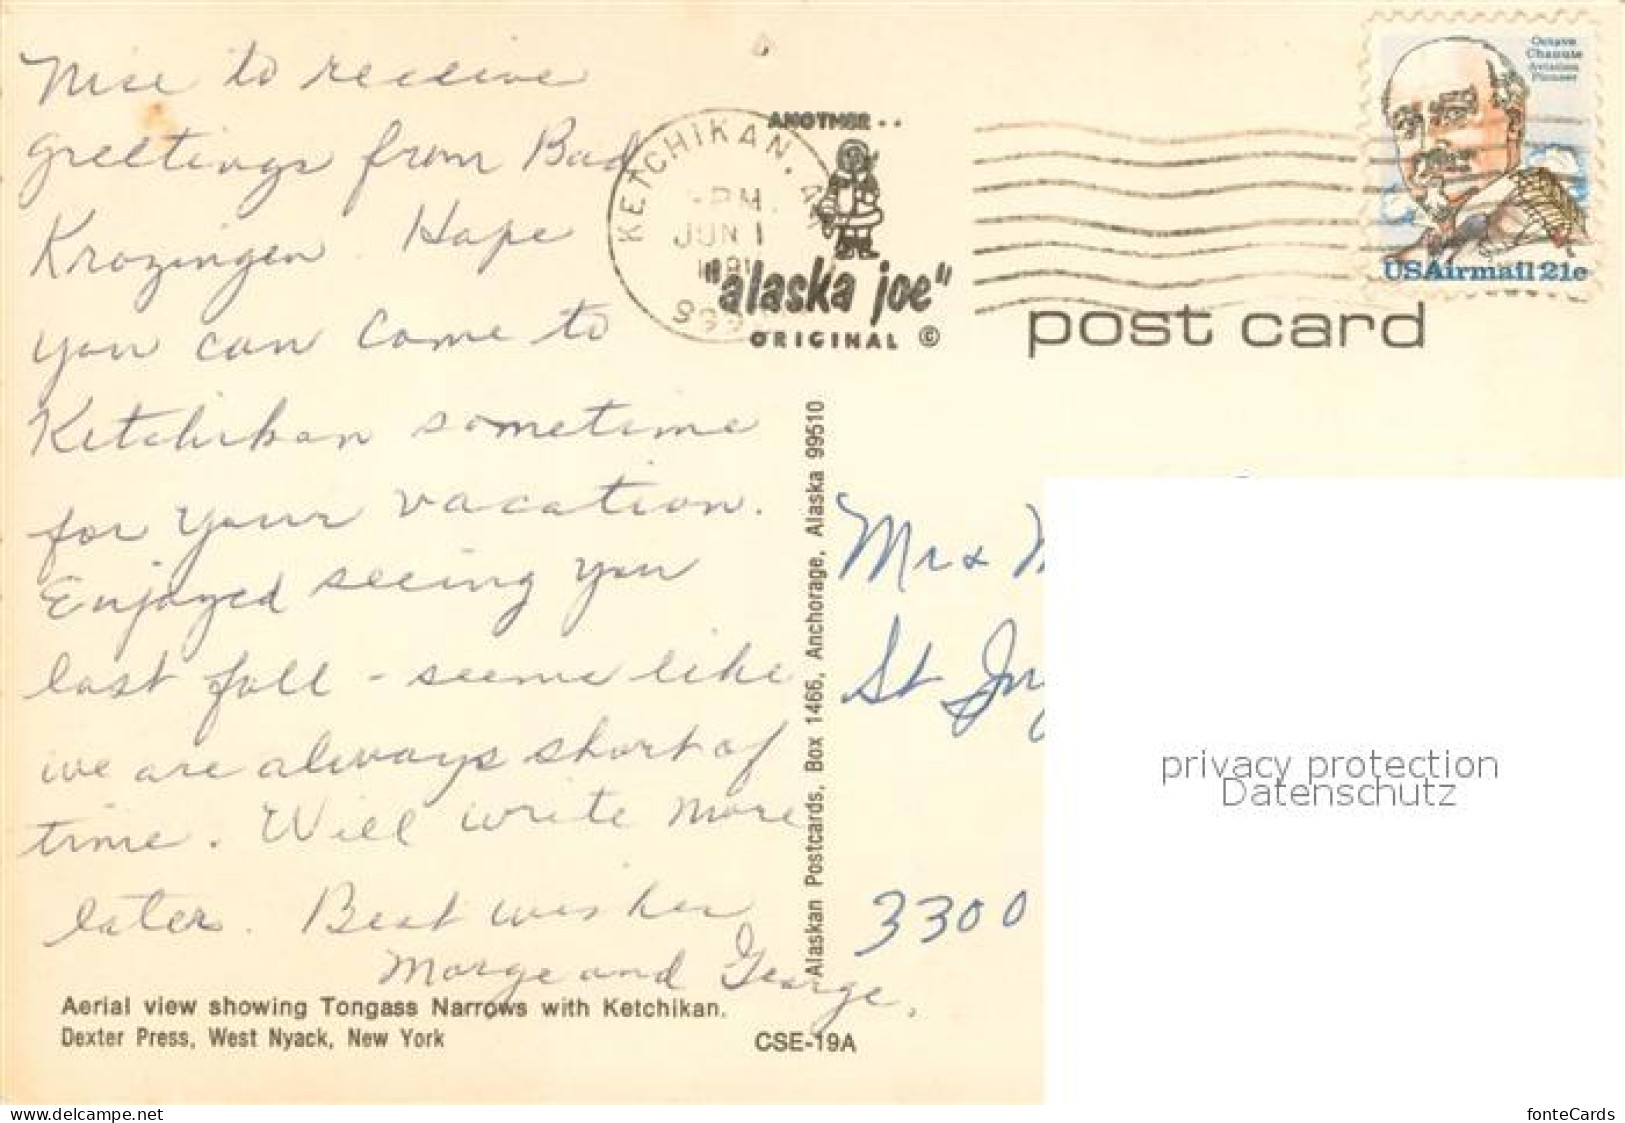 Nise to receive
greetings from Bad
Krozingen. Hope
you can come to
Ketchikan sometime
for your vacation.
Enjoyed seeing you
last fall - seems like
we are always short of
time. Will write more
later. Best wishes
Marge and George.
Aerial view showing Tongass Narrows with Ketchikan.
Dexter Press, West Nyack, New York
CSE-19A
KETCHIKAN, AK
PM
JUN 1
ANOTHER ..
"alaska joe"
ORIGINAL ©
Octave
Chanute
Aviation
Pioneer
USAirmail 21c
post card
Alaskan Postcards, Box 1466, Anchorage, Alaska 99510
Mr &
St
3300
privacy protection
Datenschutz
www.delcampe.net
fonteCards